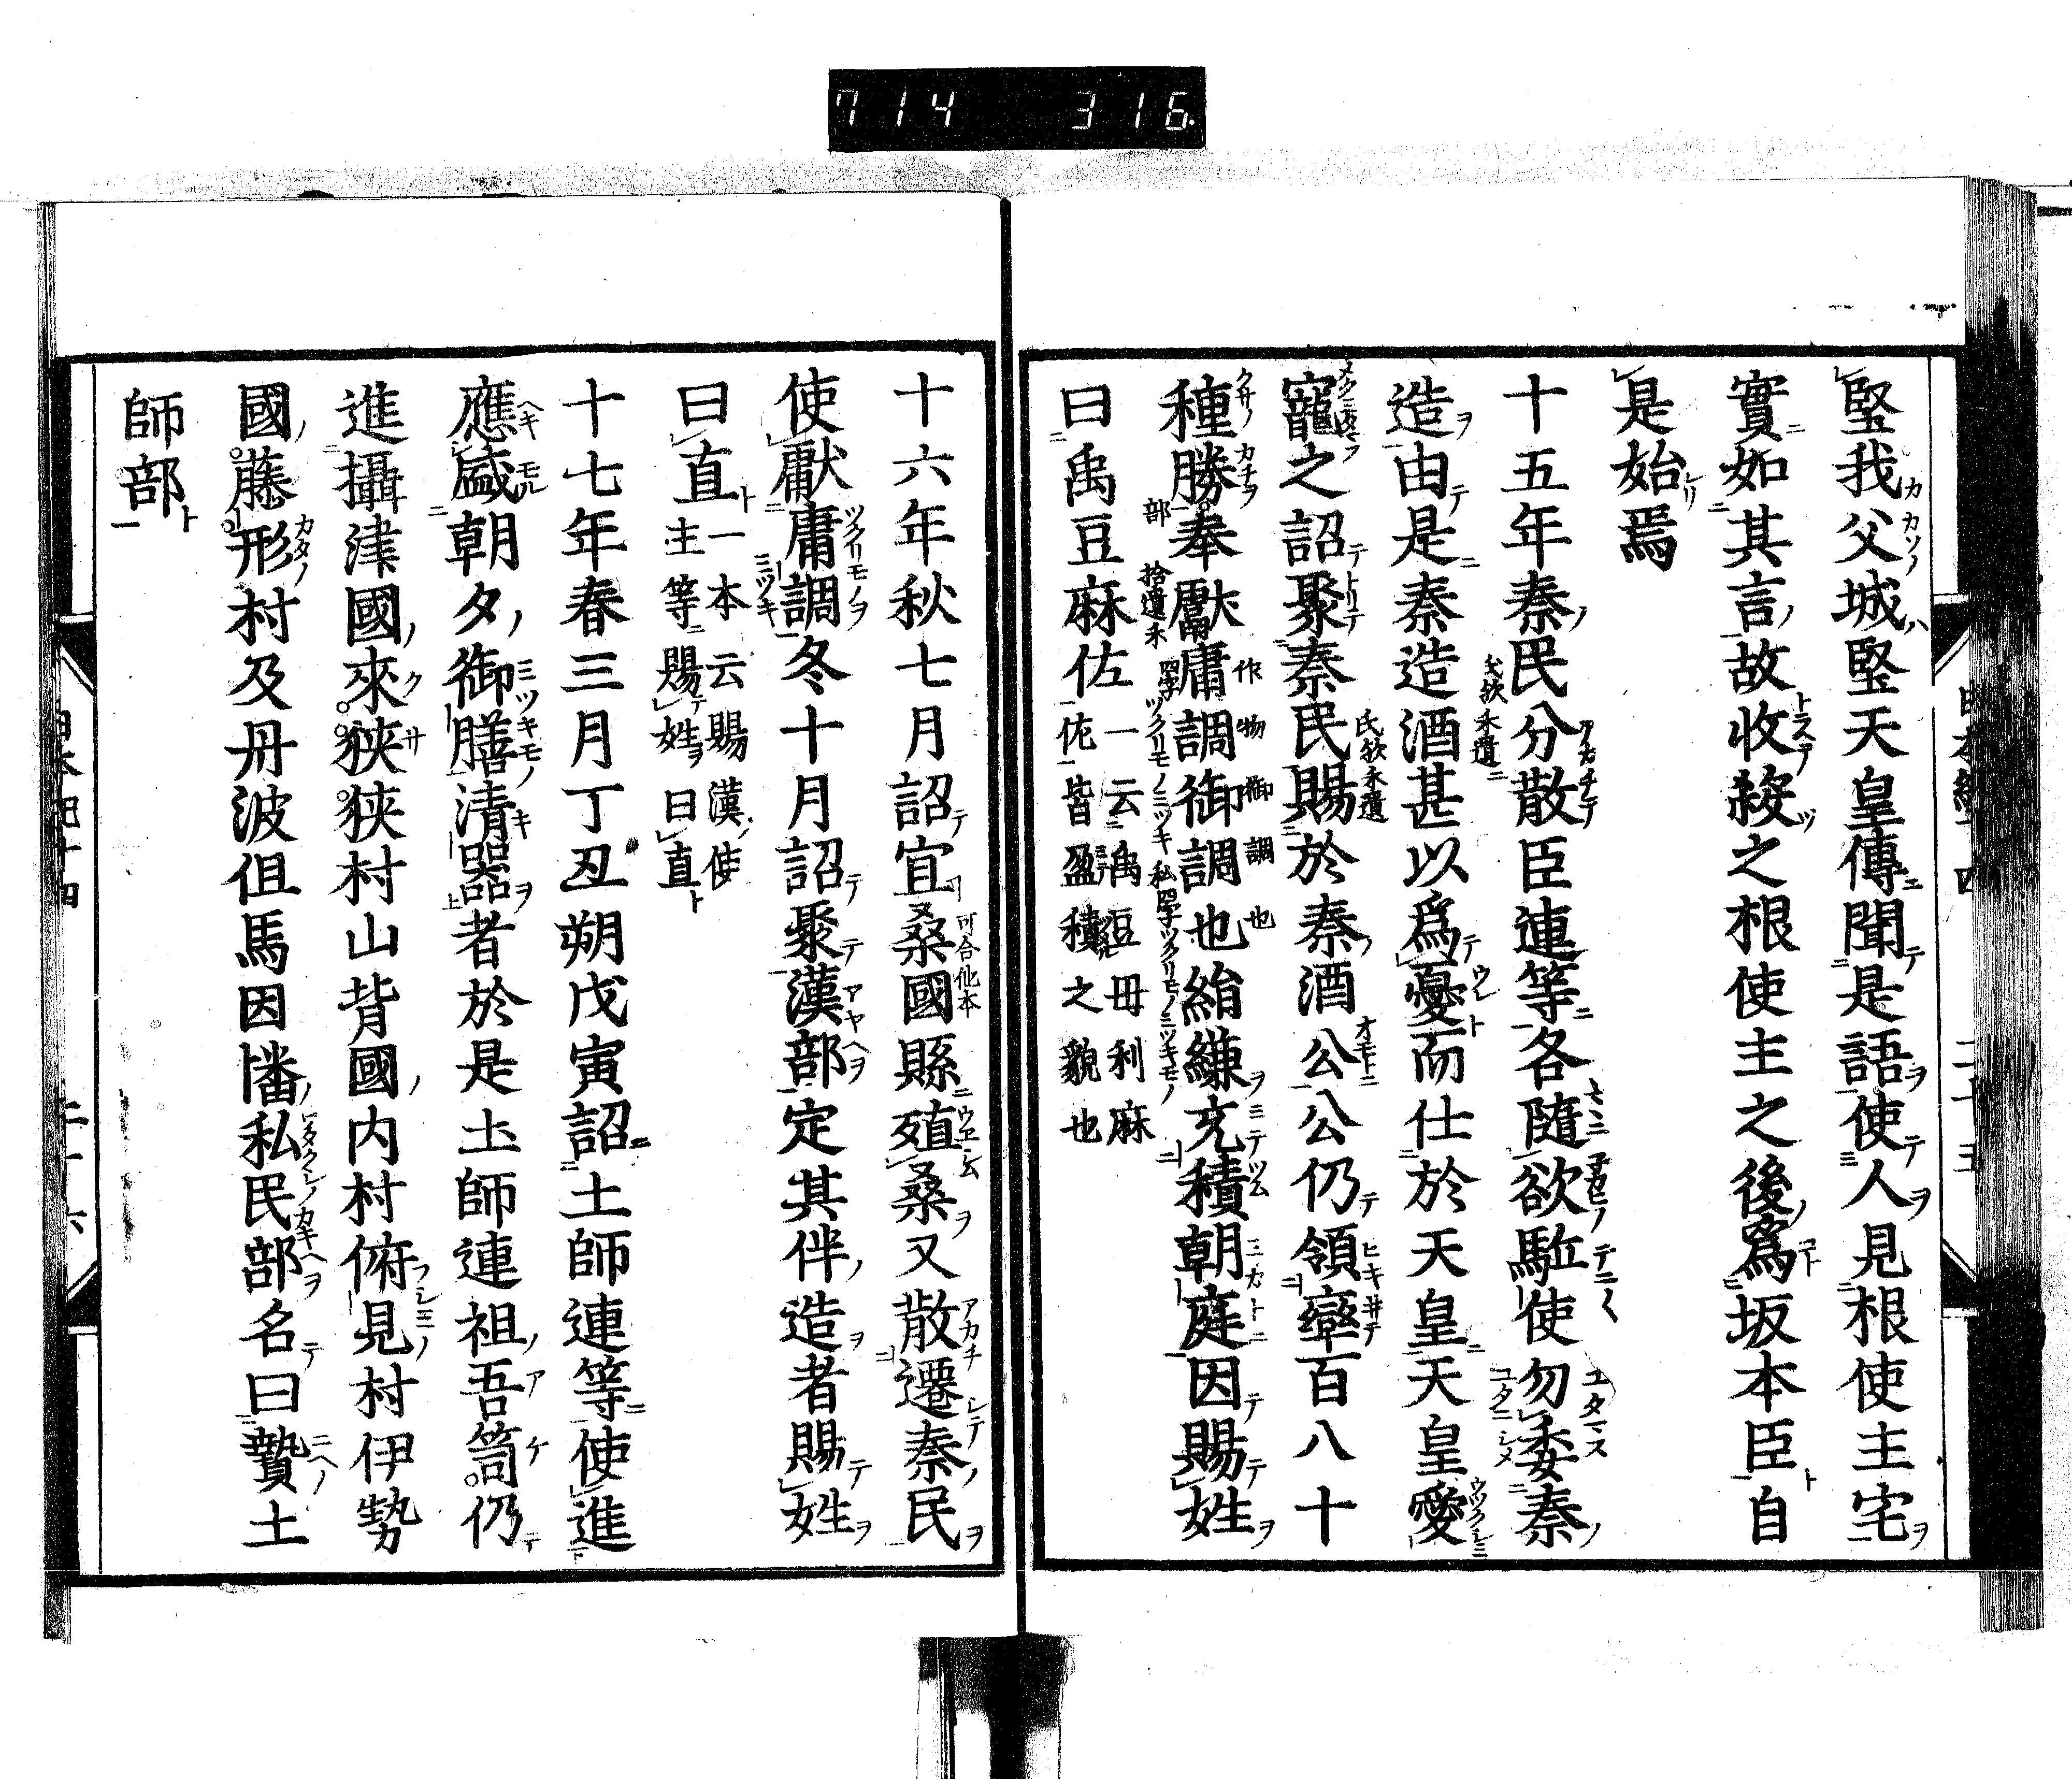 714 316
堅我父城堅天皇傳聞是語使人見根使主宅
實如其言故收殺之根使主之後爲坂本臣自
是始焉
十五年秦民分散臣連等各隨欲駈使勿委秦
造由是秦造酒甚以爲憂而仕於天皇天皇愛
寵之詔聚秦民賜於秦酒公公仍領率百八十
種勝奉獻庸調御調也絹縑充積朝庭因賜姓
曰禹豆麻佐一云禹豆母利麻佐皆盈積之貌也
十六年秋七月詔宜桑國縣殖桑又散遷秦民
使獻庸調冬十月詔聚漢部定其伴造者賜姓
曰直一本云賜漢使主等賜姓曰直
十七年春三月丁丑朔戊寅詔土師連等使進
應盛朝夕御膳清器者於是土師連祖吾笥仍
進攝津國來狹狹村山背國内村俯見村伊勢
國藤形村及丹波但馬因幡私民部名曰贄土
師部